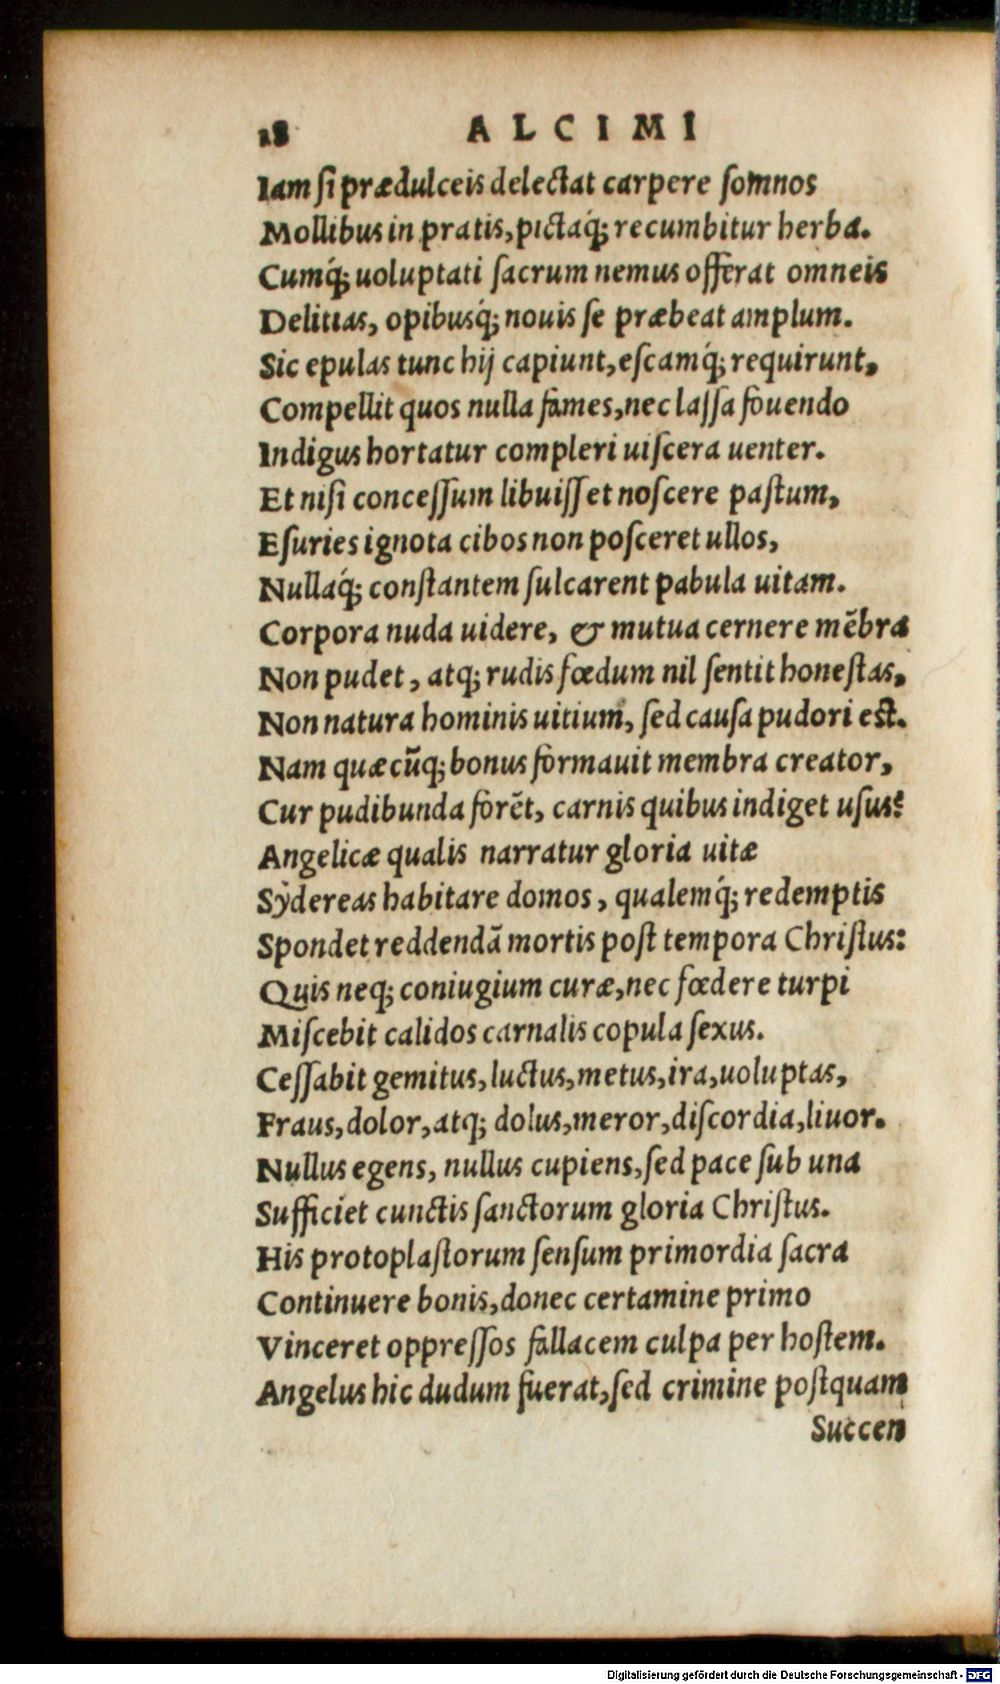 18 ALCIMI
Iam ſi prædulceis delectat carpere ſomnos
Mollibus in pratis, pictaq́; recumbitur herba.
Cumq́; uoluptati ſacrum nemus offerat omneis
Delitias, opibusq́; nouis ſe præbeat amplum.
Sic epulas tunc hij capiunt, eſcamq́; requirunt,
Compellit quos nulla fames, nec laſſa fouendo
Indigus hortatur compleri uiſcera uenter.
Et niſi conceſſum libuiſſet noſcere paſtum,
Eſuries ignota cibos non poſceret ullos,
Nullaq́; conſtantem fulcarent pabula uitam.
Corpora nuda uidere, & mutua cernere mẽbra
Non pudet, atq; rudis fœdum nil ſentit honeſtas,
Non natura hominis uitium, ſed cauſa pudori eſt.
Nam quæcũq; bonus formauit membra creator,
Cur pudibunda forẽt, carnis quibus indiget uſus?
Angelicæ qualis narratur gloria uitæ
Sÿdereas habitare domos, qualemq́; redemptis
Spondet reddendã mortis poſt tempora Chriſtus:
Quis neq; coniugium curæ, nec fœdere turpi
Miſcebit calidos carnalis copula ſexus.
Ceſſabit gemitus, luctus, metus, ira, uoluptas,
Fraus, dolor, atq; dolus, meror, diſcordia, liuor.
Nullus egens, nullus cupiens, ſed pace ſub una
Sufficiet cunctis ſanctorum gloria Chriſtus.
His protoplaſtorum ſenſum primordia ſacra
Continuere bonis, donec certamine primo
Vinceret oppreſſos fallacem culpa per hoſtem.
Angelus hic dudum fuerat, ſed crimine poſtquam
Succen
Digitalisierung gefördert durch die Deutsche Forschungsgemeinschaft - DFG